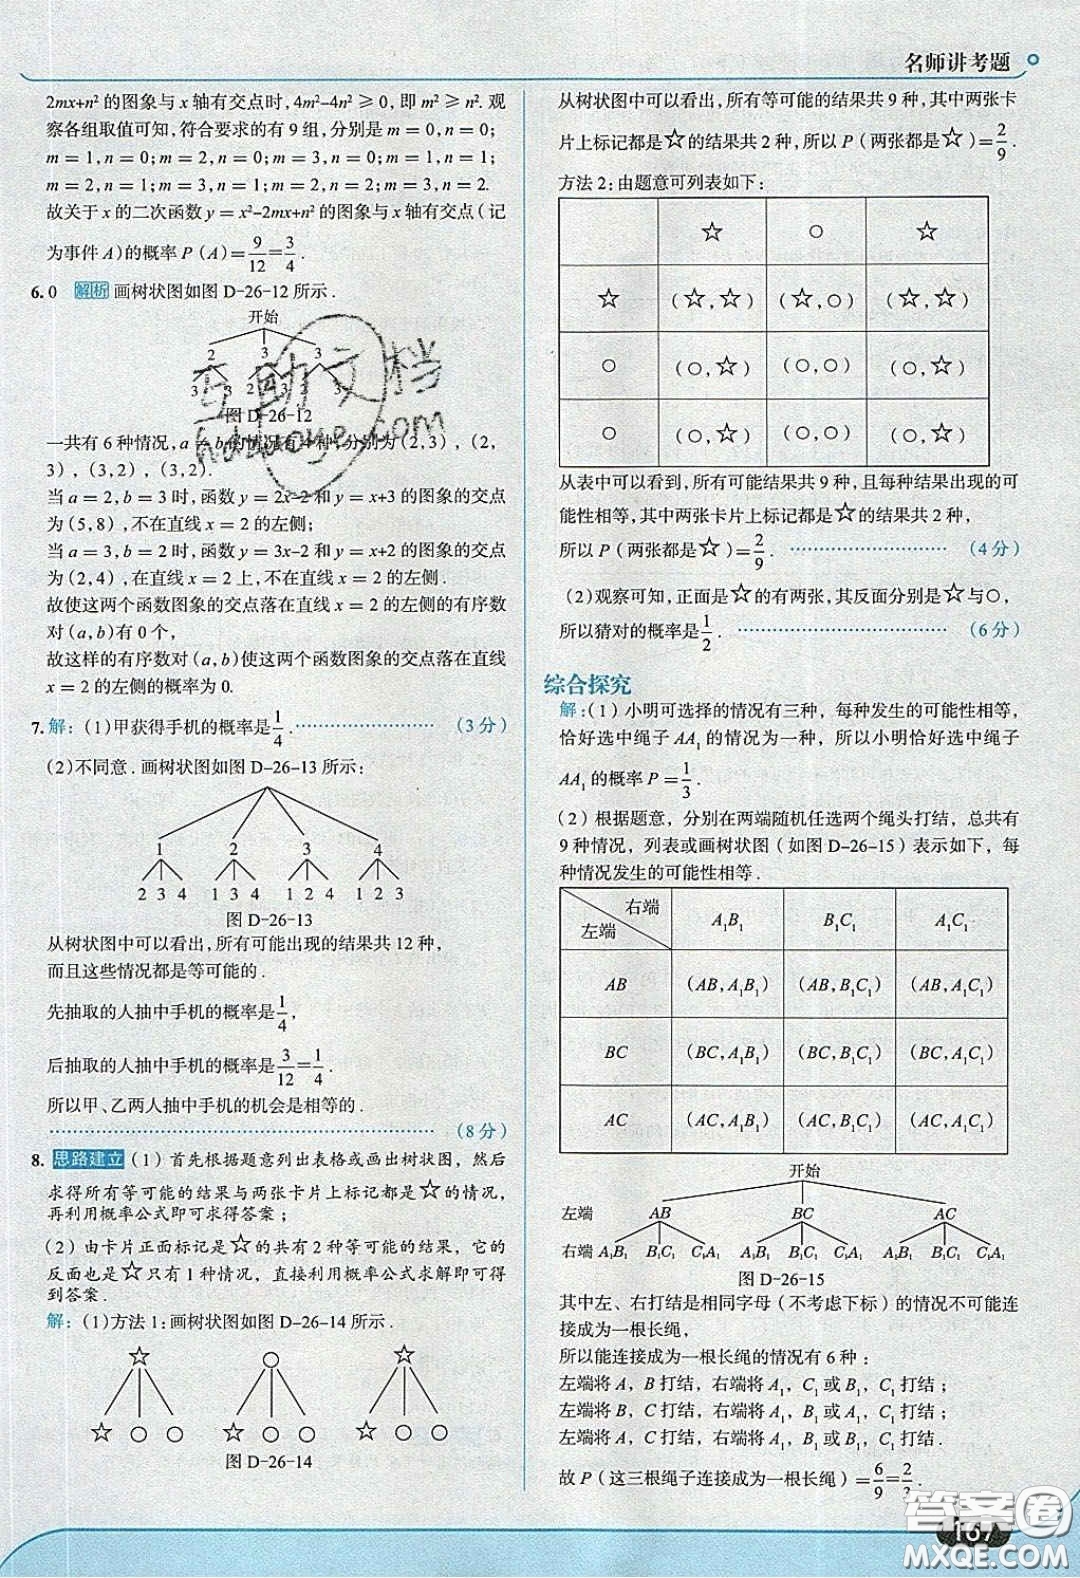 名师讲考题
2mx+n² 的图象与 x 轴有交点时,4m²-4n² ⩾ 0,即 m² ⩾ n². 观
察各组取值可知,符合要求的有 9 组,分别是 m = 0,n = 0;
m = 1,n = 0;m = 2,n = 0;m = 3,n = 0;m = 1,n = 1;
m = 2,n = 1;m = 3,n = 1;m = 2,n = 2;m = 3,n = 2.
故关于 x 的二次函数 y = x²-2mx+n² 的图象与 x 轴有交点(记
为事件 A)的概率 P(A)=9/12=3/4.
6. 0 解析 画树状图如图 D-26-12 所示.
开始
2 3 3
3 3 2 3 2 3
图 D-26-12
一共有 6 种情况,a ≠ b 的情况有 4 种,分别为(2,3),(2,
3),(3,2),(3,2).
当 a = 2,b = 3 时,函数 y = 2x-2 和 y = x+3 的图象的交点
为(5,8),不在直线 x = 2 的左侧;
当 a = 3,b = 2 时,函数 y = 3x-2 和 y = x+2 的图象的交点
为(2,4),在直线 x = 2 上,不在直线 x = 2 的左侧.
故使这两个函数图象的交点落在直线 x = 2 的左侧的有序数
对(a,b)有 0 个,
故这样的有序数对(a,b)使这两个函数图象的交点落在直线
x = 2 的左侧的概率为 0.
7. 解:(1)甲获得手机的概率是1/4. (3 分)
(2)不同意. 画树状图如图 D-26-13 所示:
1 2 3 4
2 3 4 1 3 4 1 2 4 1 2 3
图 D-26-13
从树状图中可以看出,所有可能出现的结果共 12 种,
而且这些情况都是等可能的.
先抽取的人抽中手机的概率是1/4,
后抽取的人抽中手机的概率是3/12=1/4.
所以甲、乙两人抽中手机的机会是相等的.
(8 分)
8. 思路建立 (1)首先根据题意列出表格或画出树状图,然后
求得所有等可能的结果与两张卡片上标记都是☆的情况,
再利用概率公式即可求得答案;
(2)由卡片正面标记是☆的共有 2 种等可能的结果,它的
反面也是☆只有 1 种情况,直接利用概率公式求解即可得
到答案.
解:(1)方法 1:画树状图如图 D-26-14 所示.
☆ ○ ☆
☆ ○ ○ ☆ ○ ○ ☆ ○ ○
图 D-26-14
从树状图中可以看出,所有等可能的结果共 9 种,其中两张卡
片上标记都是☆的结果共 2 种,所以 P(两张都是☆)=2/9.
方法 2:由题意可列表如下:
☆ ○ ☆
☆ (☆,☆) (☆,○) (☆,☆)
○ (○,☆) (○,○) (○,☆)
○ (○,☆) (○,○) (○,☆)
从表中可以看到,所有可能结果共 9 种,且每种结果出现的可
能性相等,其中两张卡片上标记都是☆的结果共 2 种,
所以 P(两张都是☆)=2/9. (4 分)
(2)观察可知,正面是☆的有两张,其反面分别是☆与○,
所以猜对的概率是1/2. (6 分)
综合探究
解:(1)小明可选择的情况有三种,每种发生的可能性相等,
恰好选中绳子 AA₁ 的情况为一种,所以小明恰好选中绳子
AA₁ 的概率 P=1/3.
(2)根据题意,分别在两端随机任选两个绳头打结,总共有
9 种情况,列表或画树状图(如图 D-26-15)表示如下,每
种情况发生的可能性相等.
右端 A₁B₁ B₁C₁ A₁C₁
左端
AB (AB,A₁B₁) (AB,B₁C₁) (AB,A₁C₁)
BC (BC,A₁B₁) (BC,B₁C₁) (BC,A₁C₁)
AC (AC,A₁B₁) (AC,B₁C₁) (AC,A₁C₁)
开始
左端 AB BC AC
右端 A₁B₁ B₁C₁ C₁A₁ A₁B₁ B₁C₁ C₁A₁ A₁B₁ B₁C₁ C₁A₁
图 D-26-15
其中左、右打结是相同字母(不考虑下标)的情况不可能
连接成为一根长绳,
所以能连接成为一根长绳的情况有 6 种:
左端将 A,B 打结,右端将 A₁,C₁ 或 B₁,C₁ 打结;
左端将 B,C 打结,右端将 A₁,B₁ 或 A₁,C₁ 打结;
左端将 A,C 打结,右端将 A₁,B₁ 或 B₁,C₁ 打结.
故 P(这三根绳子连接成为一根长绳)=6/9=2/3.
167
互助文档
hdzuoye.com
答案圈
MXQE.COM